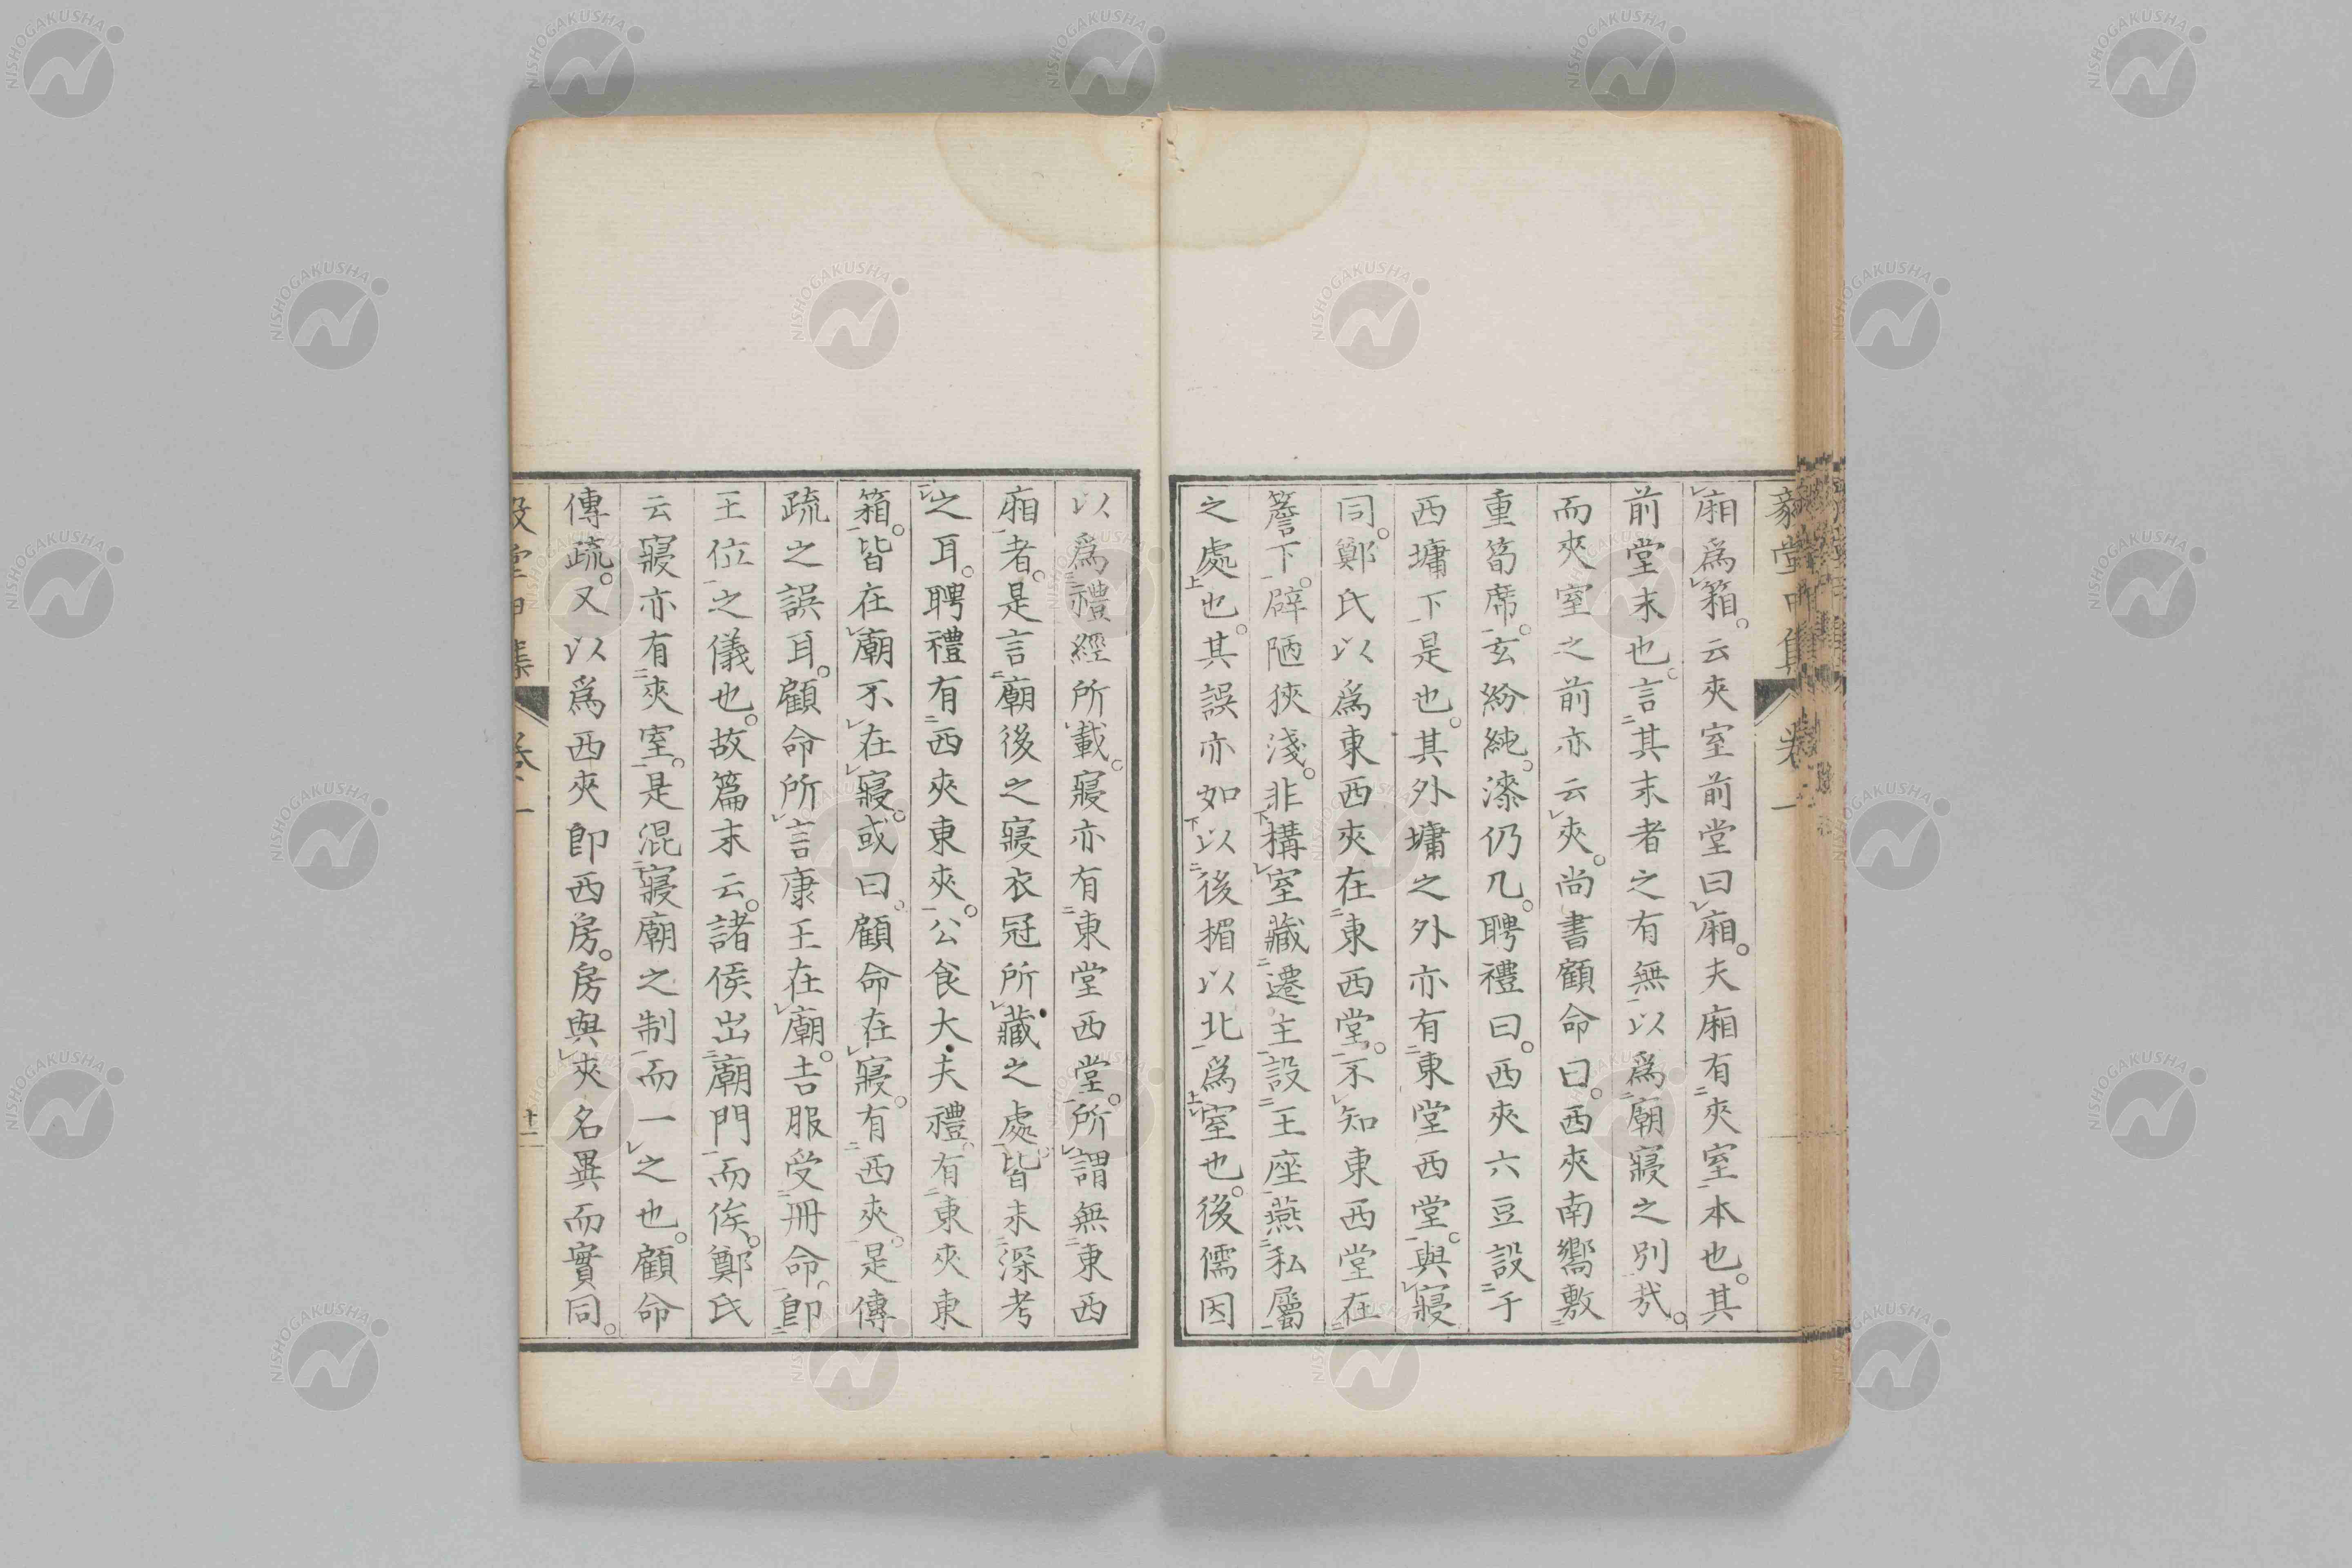 廂爲箱。云夾室前堂曰廂。夫廂有夾室本也。其
前堂末也。言其末者之有無以爲廟寢之別哉。
而夾室之前亦云夾。尚書顧命曰。西夾南嚮敷
重筍席。玄紛純。漆仍几。聘禮曰。西夾六豆設于
西墉下是也。其外墉之外亦有東堂西堂。與寢
同。鄭氏以爲東西夾在東西堂。不知東西堂在
簷下。辟陋狹淺。非構室藏遷主設王座燕私屬
之處也。其誤亦如以後楣以北爲室也。後儒因
以爲禮經所載。寢亦有東堂西堂。所謂無東西
廂者。是言廟後之寢衣冠所藏之處。皆未深考
之耳。聘禮有西夾東夾。公食大夫禮。有東夾東
箱。皆在廟不在寢。或曰。顧命在寢。有西夾。是傳
疏之誤耳。顧命所言康王在廟。吉服受冊命。卽
王位之儀也。故篇末云。諸侯出廟門而俟。鄭氏
云寢亦有夾室。是混寢廟之制而一之也。顧命
傳疏。又以爲西夾卽西房。房與夾名異而實同。
卷一
十二
NISHOGAKUSHA